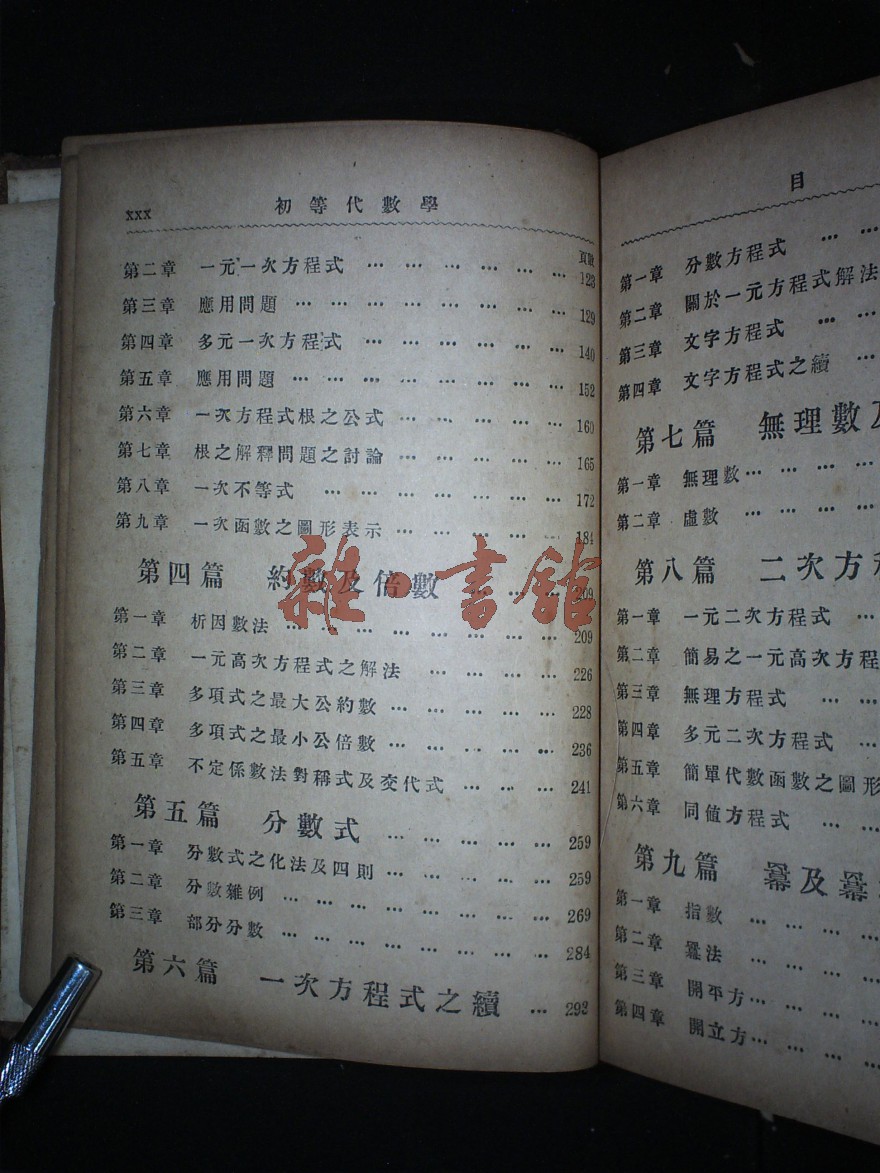 xxx 初等代數學
頁數
第二章 一元一次方程式 … … … … … … 123
第三章 應用問題 … … … … … … … … 129
第四章 多元一次方程式 … … … … … … 140
第五章 應用問題 … … … … … … … … 152
第六章 一次方程式根之公式 … … … … … 160
第七章 根之解釋問題之討論 … … … … … 165
第八章 一次不等式 … … … … … … … 172
第九章 一次函數之圖形表示 … … … … … 184
第四篇 約數及倍數 … … … 209
第一章 析因數法 … … … … … … … … 209
第二章 一元高次方程式之解法 … … … … 226
第三章 多項式之最大公約數 … … … … … 228
第四章 多項式之最小公倍數 … … … … … 236
第五章 不定係數法對稱式及交代式 … … … 241
第五篇 分數式 … … … … … 259
第一章 分數式之化法及四則 … … … … … 259
第二章 分數雜例 … … … … … … … … 269
第三章 部分分數 … … … … … … … … 284
第六篇 一次方程式之續 … 292
雜·書館
目
第一章 分數方程式 … …
第二章 關於一元方程式解法
第三章 文字方程式 … …
第四章 文字方程式之續 …
第七篇 無理數及
第一章 無理數 … … … …
第二章 虛數 … … … …
第八篇 二次方程
第一章 一元二次方程式 …
第二章 簡易之一元高次方程
第三章 無理方程式 … …
第四章 多元二次方程式 …
第五章 簡單代數函數之圖形
第六章 同値方程式 … …
第九篇 冪及冪
第一章 指數 … … … …
第二章 冪法 … … … …
第三章 開平方 … … … …
第四章 開立方 … … … …